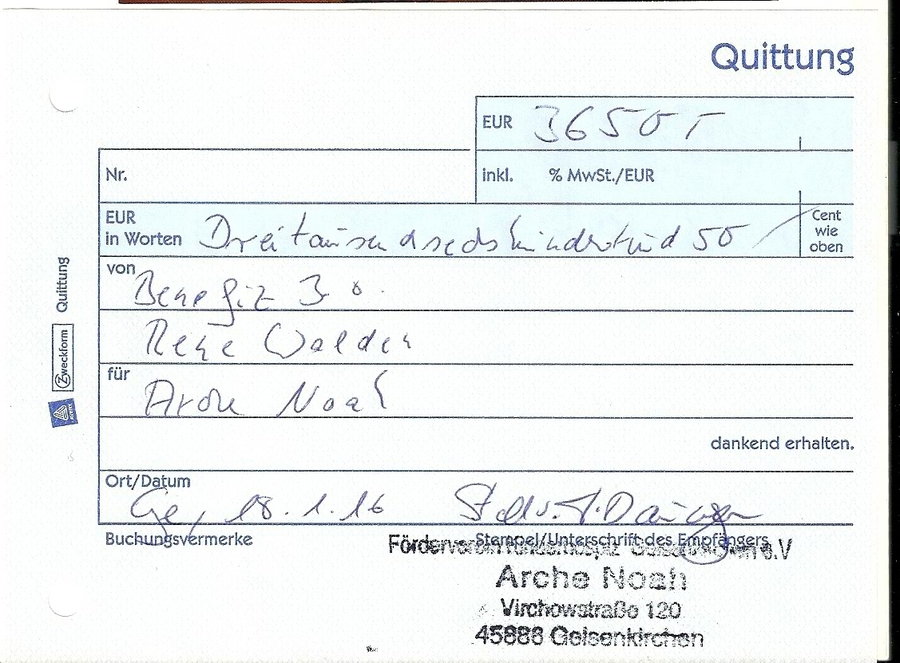 Quittung
EUR 3650
Nr.
inkl. % MwSt./EUR
EUR
in Worten Dreitausendsechshundertund 50
Cent
wie
oben
von
Benefiz
Rene
für
Arche Noah
dankend erhalten.
Ort/Datum
Ge, 18.1.16
Buchungsvermerke
Stempel/Unterschrift des Empfängers
Arche Noah
Virchowstraße 120
45886 Gelsenkirchen
Zweckform Quittung